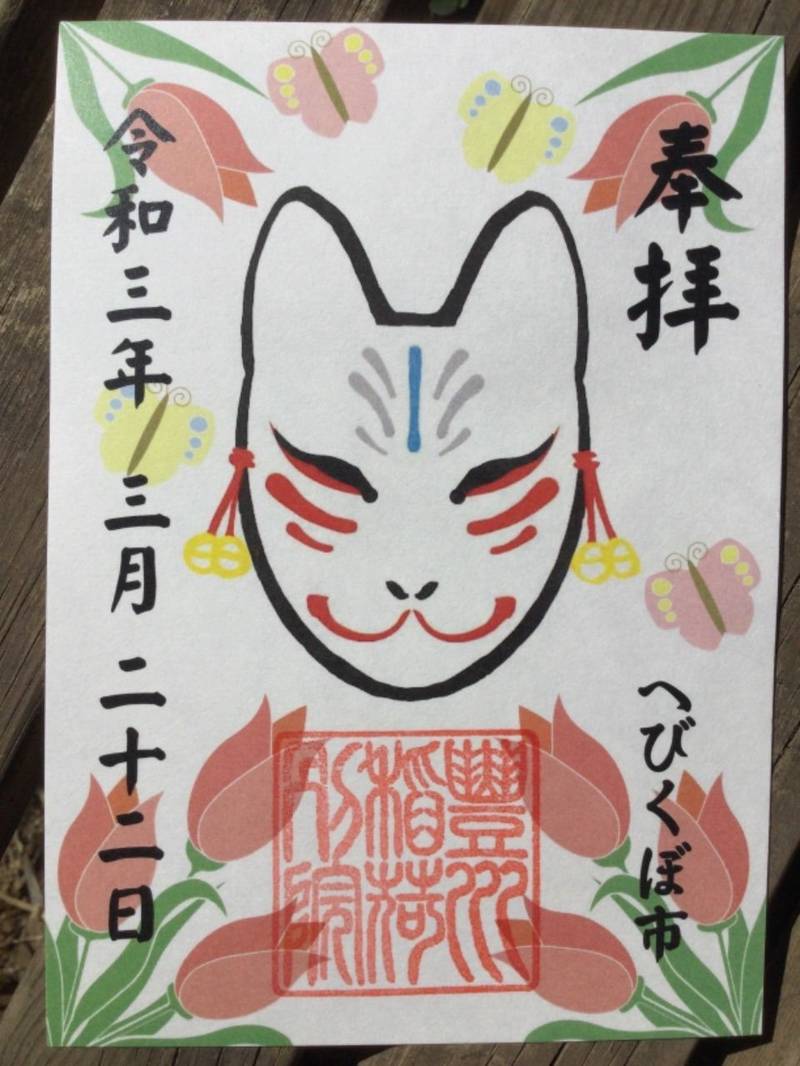 奉拝
へびくぼ市
豊川
稲荷
別院
令和三年 三月 二十二日